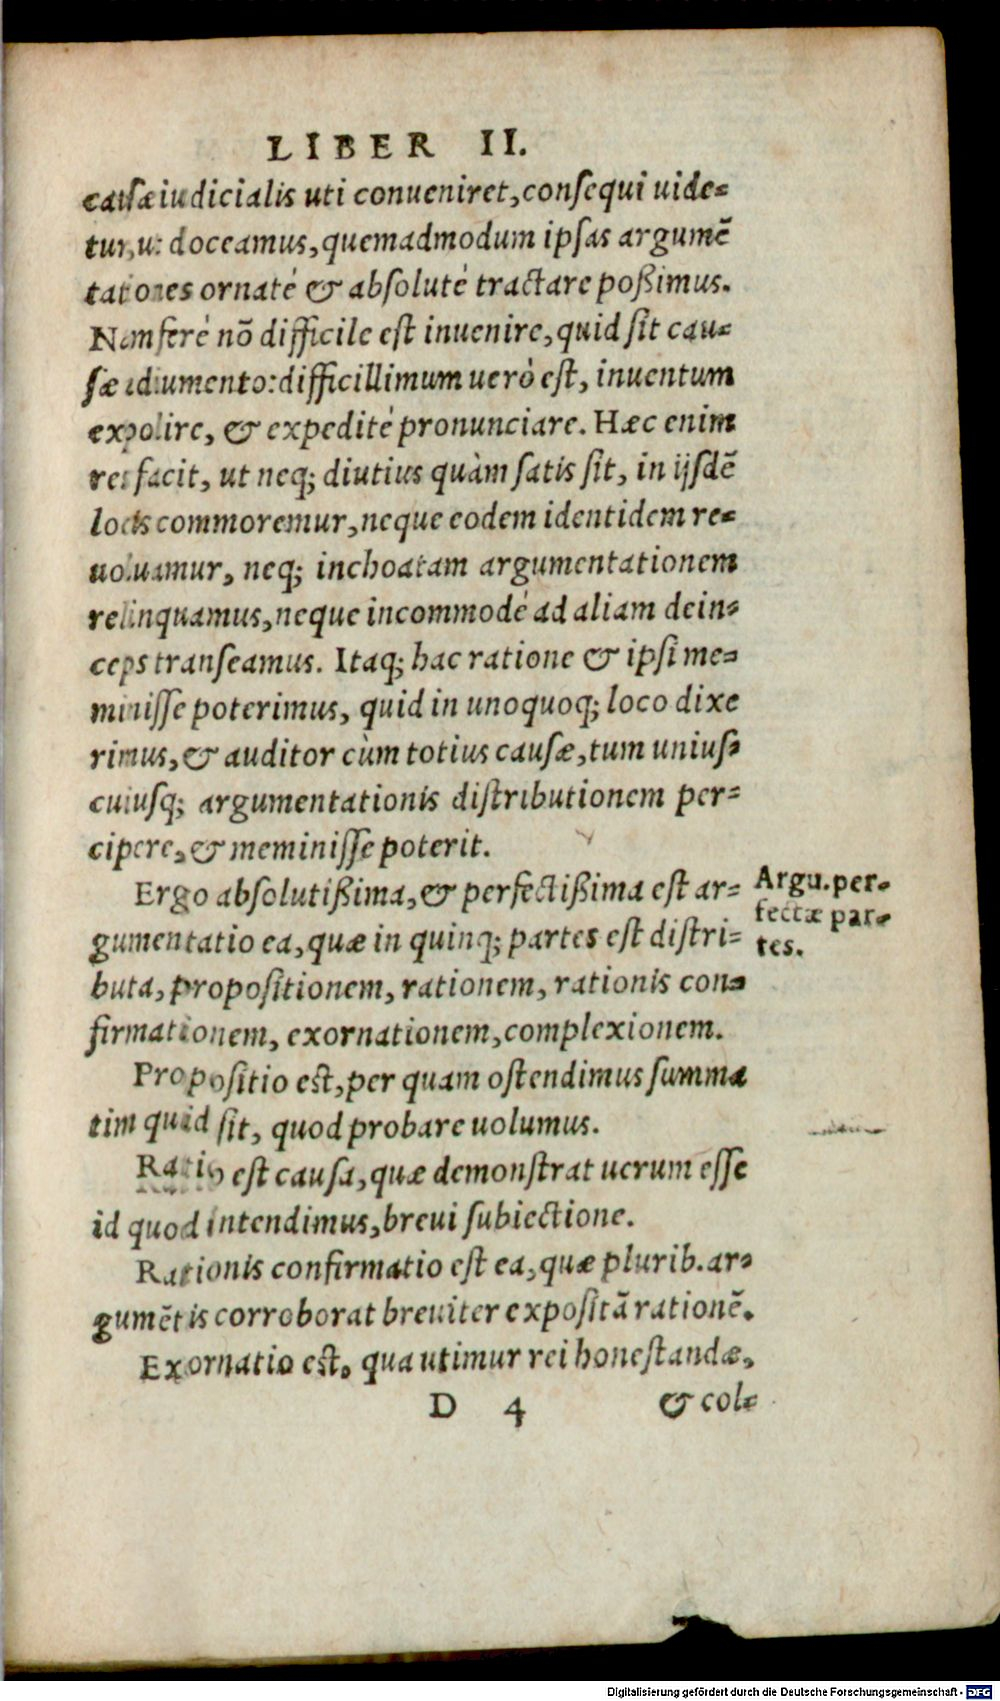 LIBER II.
causæ iudicialis uti conueniret, consequi uide-
tur, ut doceamus, quemadmodum ipsas argumē
tationes ornatè & absolutè tractare poßimus.
Nam ferè nō difficile est inuenire, quid sit cau-
sæ adiumento: difficillimum uerò est, inuentum
expolire, & expeditè pronunciare. Hæc enim
res facit, ut neq; diutius quàm satis sit, in ijsdē
locis commoremur, neque eodem identidem re-
uoluamur, neq; inchoatam argumentationem
relinquamus, neque incommodè ad aliam dein-
ceps transeamus. Itaq; hac ratione & ipsi me-
minisse poterimus, quid in unoquoq; loco dixe
rimus, & auditor cùm totius causæ, tum unius-
cuiusq; argumentationis distributionem per-
cipere, & meminisse poterit.
Ergo absolutißima, & perfectißima est ar-
gumentatio ea, quæ in quinq; partes est distri-
buta, propositionem, rationem, rationis con-
firmationem, exornationem, complexionem.
Argu. per-
fectæ par-
tes.
Propositio est, per quam ostendimus summa
tim quid sit, quod probare uolumus.
Ratio est causa, quæ demonstrat uerum esse
id quod intendimus, breui subiectione.
Rationis confirmatio est ea, quæ plurib. ar-
gumētis corroborat breuiter expositā rationē.
Exornatio est, qua utimur rei honestandæ,
D 4 & col-
Digitalisierung gefördert durch die Deutsche Forschungsgemeinschaft - DFG